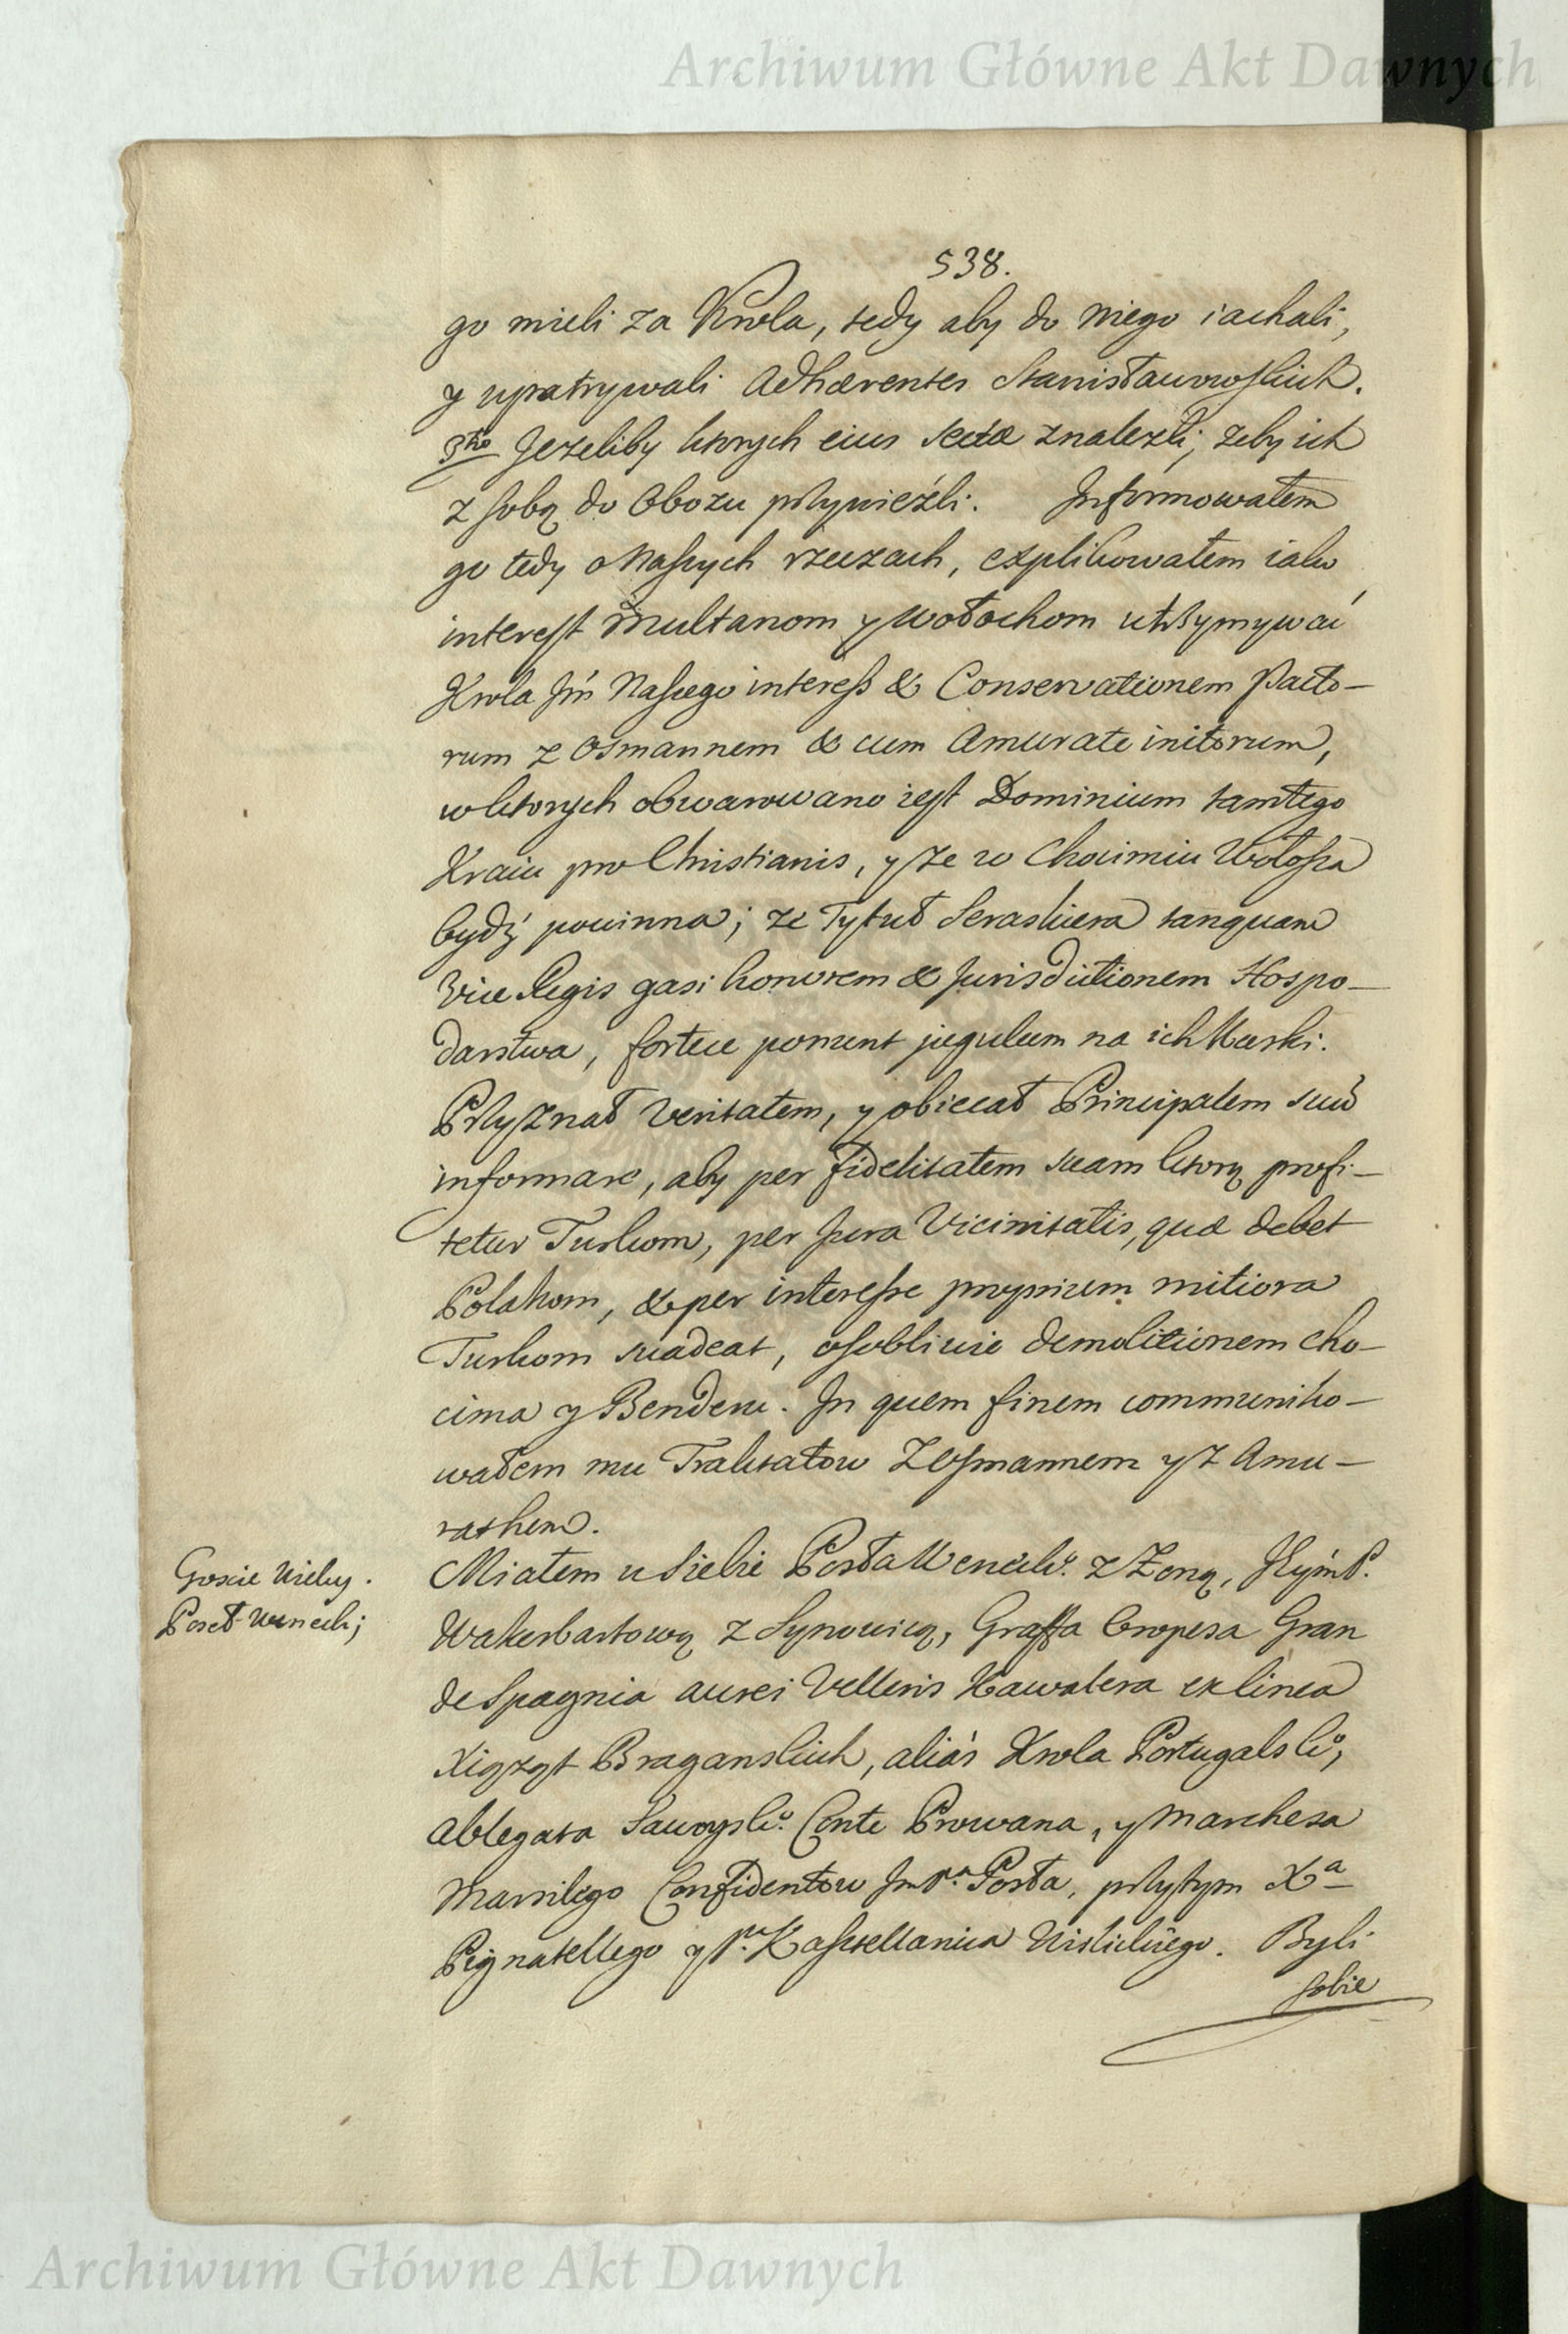 Archiwum Główne Akt Dawnych
538.
go mieli za Krola, tedy aby do niego iachali,
y upatrywali Adhærentes Stanisławowskich.
3tio Jezeliby ktorych eius sectæ znalezli, zeby ich
z sobą do Obozu przywieźli. Informowałem
go tedy o Naszych rzeczach, explikowałem iako
interest Multanom y Wołochom utrzymywać
Krola Jm Naszego interess & Conservationem Pacto-
rum z Osmannem & cum Amurate initorum,
w ktorych obwarowano iest Dominium tamtego
Kraiu pro Christianis, y ze w Chocimiu Wołosza
bydź powinna; ze Tytuł Seraskiera tanquam
Vice Regis gasi honorem & Jurisdictionem Hospo-
darstwa, fortece ponunt jugulum na ich Karki.
Przyznał Veritatem, y obiecał Principalem suū
informare, aby per fidelitatem suam ktorą profi-
tetur Turkom, per Jura Vicinitatis, quæ debet
Polakom, & per interesse proprium mitiora
Turkom suadeat, osobliwie demolitionem Cho-
cima y Benderu. In quem finem communiko-
wałem mu Traktatow z Osmannem y z Amu-
rathem.
Goscie Wielcy.
Poseł Wenecki;
Miałem u siebie Posła Weneckō. z Zoną, Hrymb.
Wakerbartową z Synowicą, Graffa Oropesa Gran
de Spagnia aurei Velleris Kawalera ex linea
Xiążąt Braganskich, aliàs Krola Portugalskō,
Ablegata Sawoyskō. Conte Prowana, y Marchesa
Marsilego Confidentow Jmpa. Posła, przytym Xa
Pignatellego y Pna Kasztellanica Wislickiego. Byli
sobie
Archiwum Główne Akt Dawnych